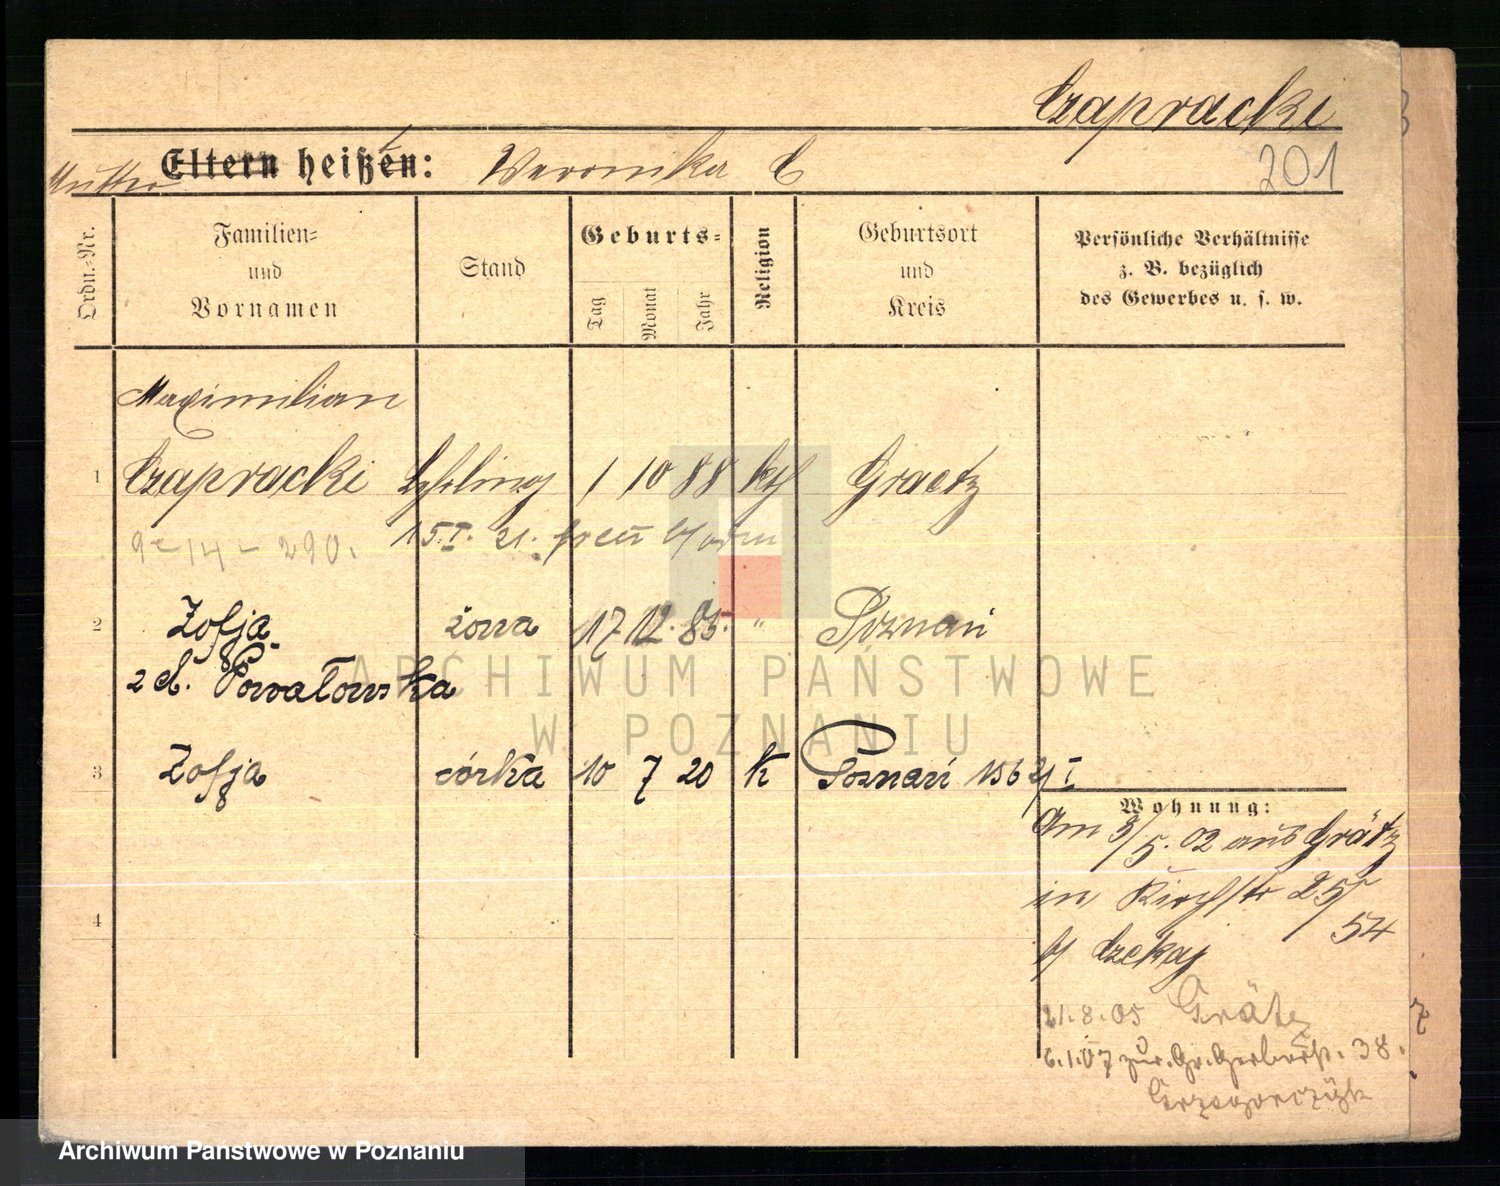 Czapracki
201
Mutter Eltern heißen: Veronika C
Ordn.-Nr.
Familien-
und
Vornamen
Stand
Geburts-
Tag
Monat
Jahr
Religion
Geburtsort
und
Kreis
Persönliche Verhältnisse
z. B. bezüglich
des Gewerbes u. s. w.
Maximilian
1 Czapracki 1 10 88 kth Graetz
9 14 - 290. 15.I. 21.
2 Zofja żona 17 12. 85. " Poznań
z d. Powałowska
3 Zofja córka 10 7 20 K Poznań 156 21 I
Wohnung:
Am 3/5. 02 aus Grätz
in Kirchstr 25
54
b/ Czekaj
4
21.8.05 Grätz
6.1.07 zur. Gr. Gerberstr. 38.
ARCHIWUM PAŃSTWOWE
W POZNANIU
Archiwum Państwowe w Poznaniu